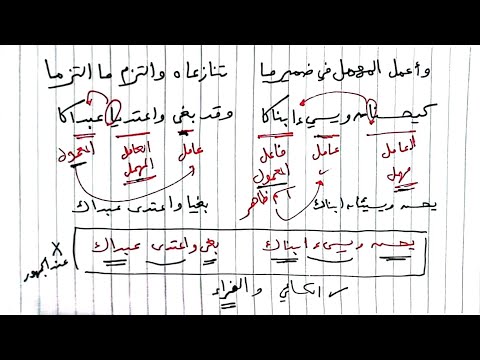 وأعمل المهمل في ضمير ما تنازعاه والتزم ما التزما
كيحسنان ويسيء ابناكا وقد بغى واعتديا عبداكا
العامل عامل فاعل عامل العامل المعمول
مهمل المعمول المهمل
اسم ظاهر
يحسن ويسيئان ابناك بغيا واعتدى عبداك
يحسن ويسيء ابناك بغى واعتدى عبداك
x عند الجمهور
الكسائي والفراء